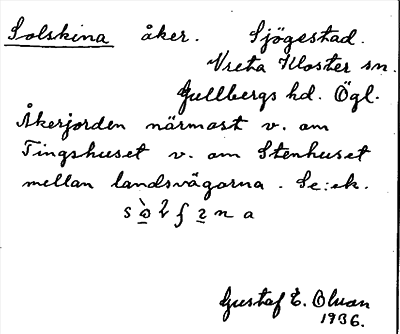 Solskina åker. Sjögestad.
Vreta Kloster sn.
Gullbergs hd. Ögl.
Åkerjorden närmast v. om
Tingshuset v. om Stenhuset
mellan landsvägarna. Se: ek.
Gustaf E.
1936.